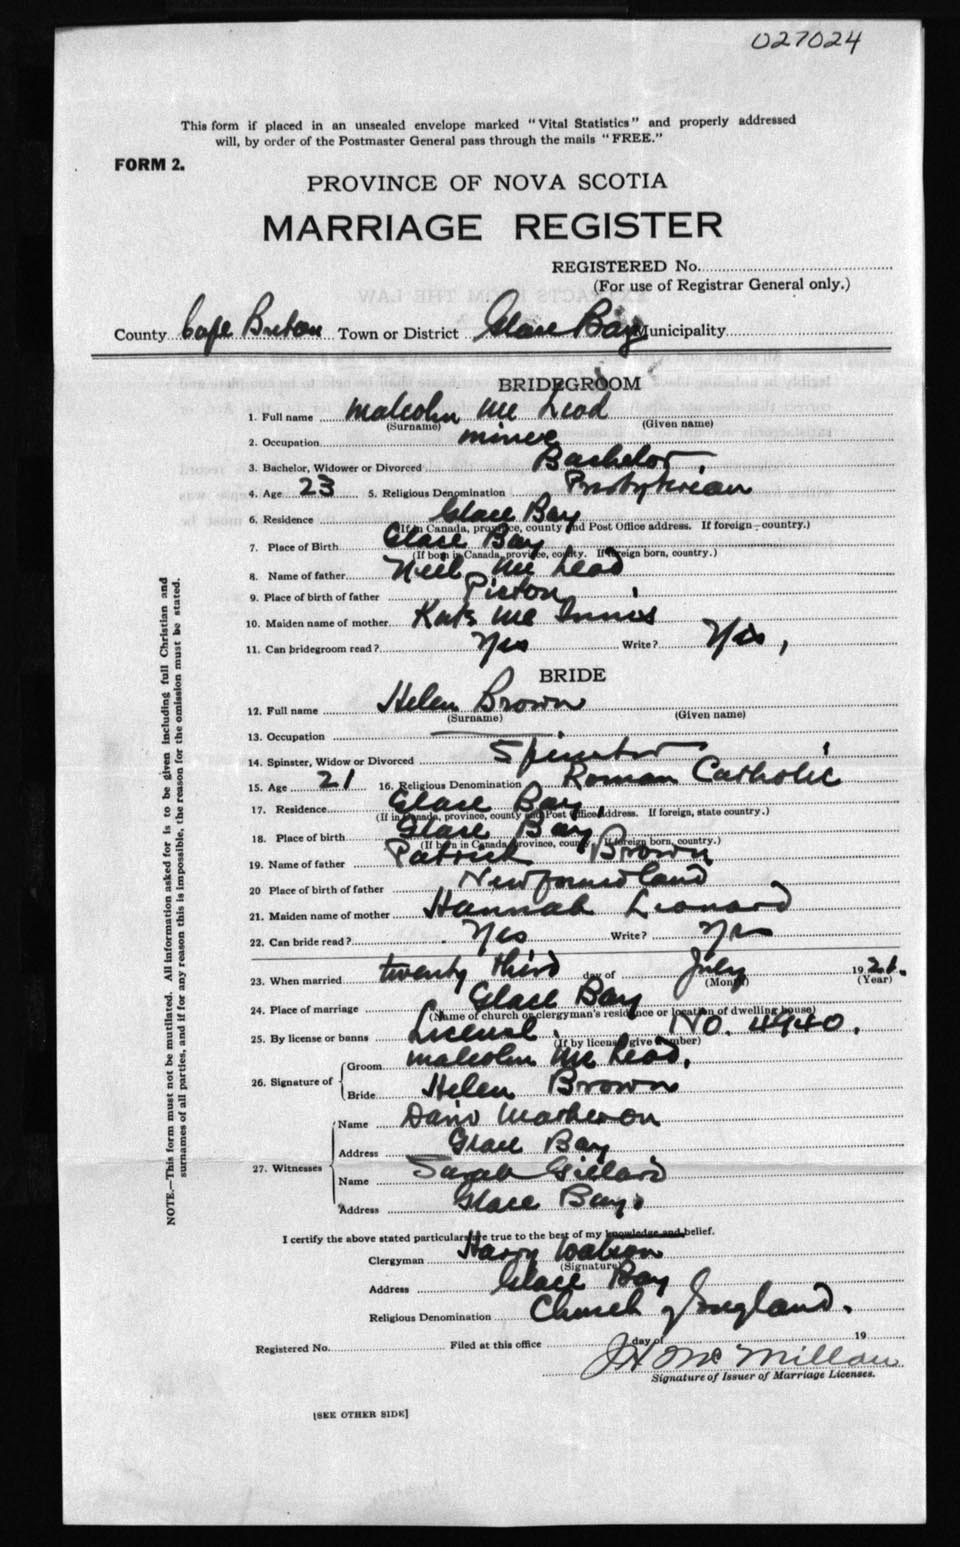 027024
This form if placed in an unsealed envelope marked "Vital Statistics" and properly addressed
will, by order of the Postmaster General pass through the mails "FREE."
FORM 2.
PROVINCE OF NOVA SCOTIA
MARRIAGE REGISTER
REGISTERED No.
(For use of Registrar General only.)
County Cape Breton Town or District Glace Bay Municipality
BRIDEGROOM
1. Full name Malcolm Mc Leod
(Surname) (Given name)
2. Occupation miner
3. Bachelor, Widower or Divorced Bachelor
4. Age 23 5. Religious Denomination Presbyterian
6. Residence Glace Bay
(If in Canada, province, county and Post Office address. If foreign - country.)
7. Place of Birth Glace Bay
(If born in Canada, province, county. If foreign born, country.)
8. Name of father Neil Mc Leod
9. Place of birth of father Pictou
10. Maiden name of mother Kate Mc Innis
11. Can bridegroom read? Yes Write? Yes,
BRIDE
12. Full name Helen Brown
(Surname) (Given name)
13. Occupation
14. Spinster, Widow or Divorced Spinster
15. Age 21 16. Religious Denomination Roman Catholic
17. Residence Glace Bay.
(If in Canada, province, county and Post Office address. If foreign, state country.)
18. Place of birth Glace Bay
(If born in Canada, province, county. If foreign born, country.)
19. Name of father Patrick Brown
20 Place of birth of father Newfoundland
21. Maiden name of mother Hannah Leonard
22. Can bride read? Yes Write? Yes
23. When married twenty third day of July 19
(Month) (Year)
24. Place of marriage Glace Bay
(Name of church or clergyman's residence or location of dwelling house)
25. By license or banns License. No. 4940.
(If by license give number)
26. Signature of Groom Malcolm Mc Leod.
Bride Helen Brown
27. Witnesses Name Matheson
Address Glace Bay
Name Sarah Gillard
Address Glace Bay.
I certify the above stated particulars are true to the best of my knowledge and belief.
Clergyman Harry Watson
(Signature)
Address Glace Bay
Religious Denomination Church of England.
Registered No. Filed at this office day of 19
J H Mc Millan
Signature of Issuer of Marriage Licenses.
[SEE OTHER SIDE]
NOTE.—This form must not be mutilated. All information asked for is to be given including full Christian and
surnames of all parties, and if for any reason this is impossible, the reason for the omission must be stated.